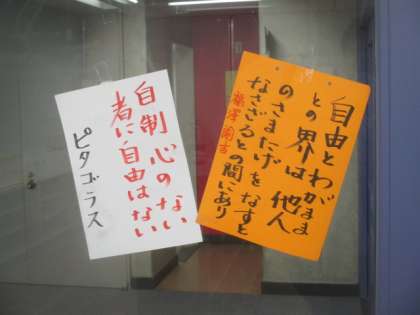 自由とわがまま
との界は他人
のさまたげをなすと
なさざるとの間にあり
福澤諭吉
自制心のない
者に自由はない
ピタゴラス